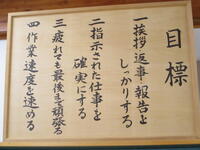 目標
一挨拶返事報告を
しっかりする
二指示された仕事を
確実にする
三疲れても最後まで頑張る
四作業速度を速める